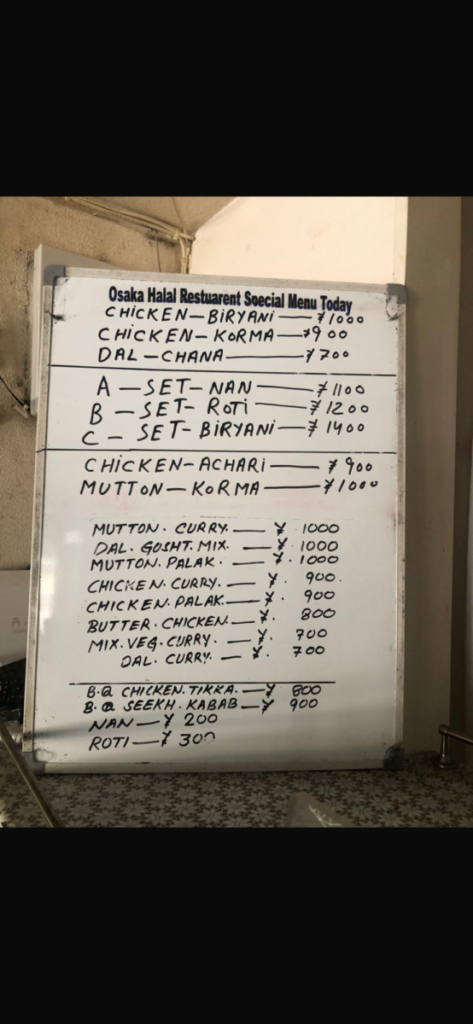 Osaka Halal Restuarent Soecial Menu Today
CHICKEN—BIRYANI — ¥1000
CHICKEN—KORMA — ¥900
DAL—CHANA — ¥700
A — SET— NAN — ¥1100
B — SET— ROTI — ¥1200
C — SET—BIRYANI — ¥1400
CHICKEN—ACHARI — ¥900
MUTTON—KORMA — ¥1000
MUTTON. CURRY. — ¥. 1000
DAL. GOSHT. MIX. — ¥. 1000
MUTTON. PALAK. — ¥. 1000
CHICKEN. CURRY. — ¥. 900.
CHICKEN. PALAK. — ¥. 900
BUTTER. CHICKEN — ¥. 800
MIX. VEG. CURRY. — ¥. 700
DAL. CURRY. — ¥. 700
B.Q CHICKEN. TIKKA. — ¥ 800
B.Q SEEKH. KABAB — ¥ 900
NAN — ¥ 200
ROTI — ¥ 300